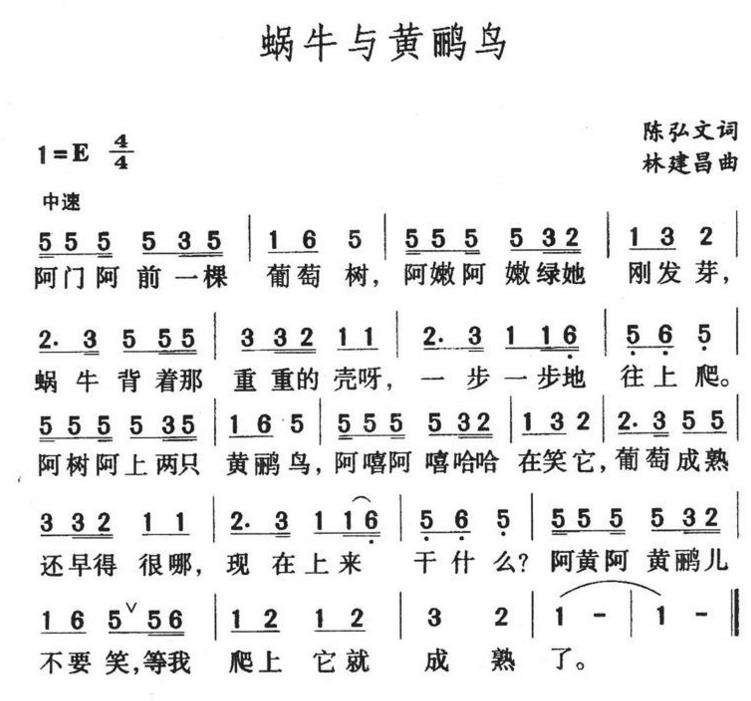 蜗牛与黄鹂鸟
陈弘文词
1=E 4/4
林建昌曲
中速
5 5 5 5 3 5 | 1 6 5 | 5 5 5 5 3 2 | 1 3 2 |
阿门阿前一棵 葡萄树，阿嫩阿嫩绿她 刚发芽，
2. 3 5 5 5 | 3 3 2 1 1 | 2. 3 1 1 6 | 5 6 5 |
蜗牛背着那 重重的壳呀，一步一步地 往上爬。
5 5 5 5 3 5 | 1 6 5 | 5 5 5 5 3 2 | 1 3 2 | 2. 3 5 5
阿树阿上两只 黄鹂鸟，阿嘻阿嘻哈哈 在笑它，葡萄成熟
3 3 2 1 1 | 2. 3 1 1 6 | 5 6 5 | 5 5 5 5 3 2 |
还早得很哪，现在上来 干什么？阿黄阿黄鹂儿
1 6 5 ∨ 5 6 | 1 2 1 2 | 3 2 | 1 - | 1 - ‖
不要笑，等我 爬上它就 成熟了。